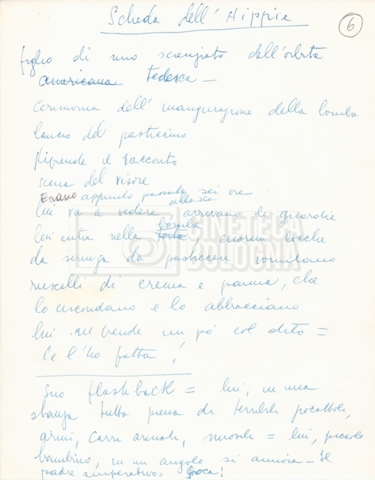 Scheda dell'Hippie
6
figlio di uno scienziato dell'orbita
americana tedesca —
Cerimonia dell'inaugurazione della bomba
lancio del pasticcino
Riprende il racconto
scena del visore
Erano appunto passate sei ore
lui va a vedere alla sca arrivano le guardie
lui entra nella bomba enormi bocche
da siringa da pasticcere vomitano
ruscelli di crema e panna, che
lo circondano e lo abbracciano
lui ne prende un po' col dito =
Ce l'ho fatta!
CINETECA
BOLOGNA
Suo flashback = lui, in una
stanza tutta piena di terribili giocattoli,
armi, carri armati, = lui, piccolo
bambino, in un angolo si annoia — Il
padre imperativo: Gioca!